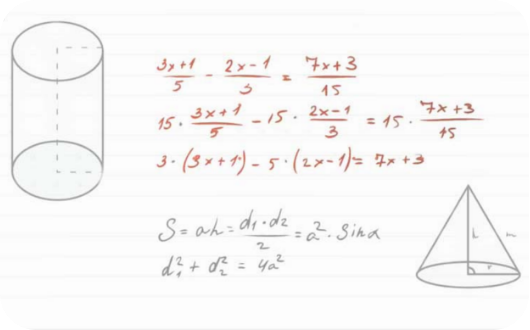 (3x+1)/5 - (2x-1)/3 = (7x+3)/15
15 · (3x+1)/5 - 15 · (2x-1)/3 = 15 · (7x+3)/15
3 · (3x+1) - 5 · (2x-1) = 7x+3
S = ah = (d₁·d₂)/2 = a² · Sinα
d₁² + d₂² = 4a²
h
m
r